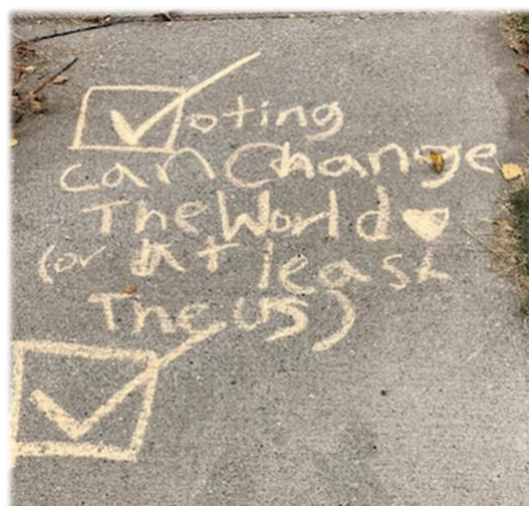 Voting
can Change
The World
(or At least
The US)